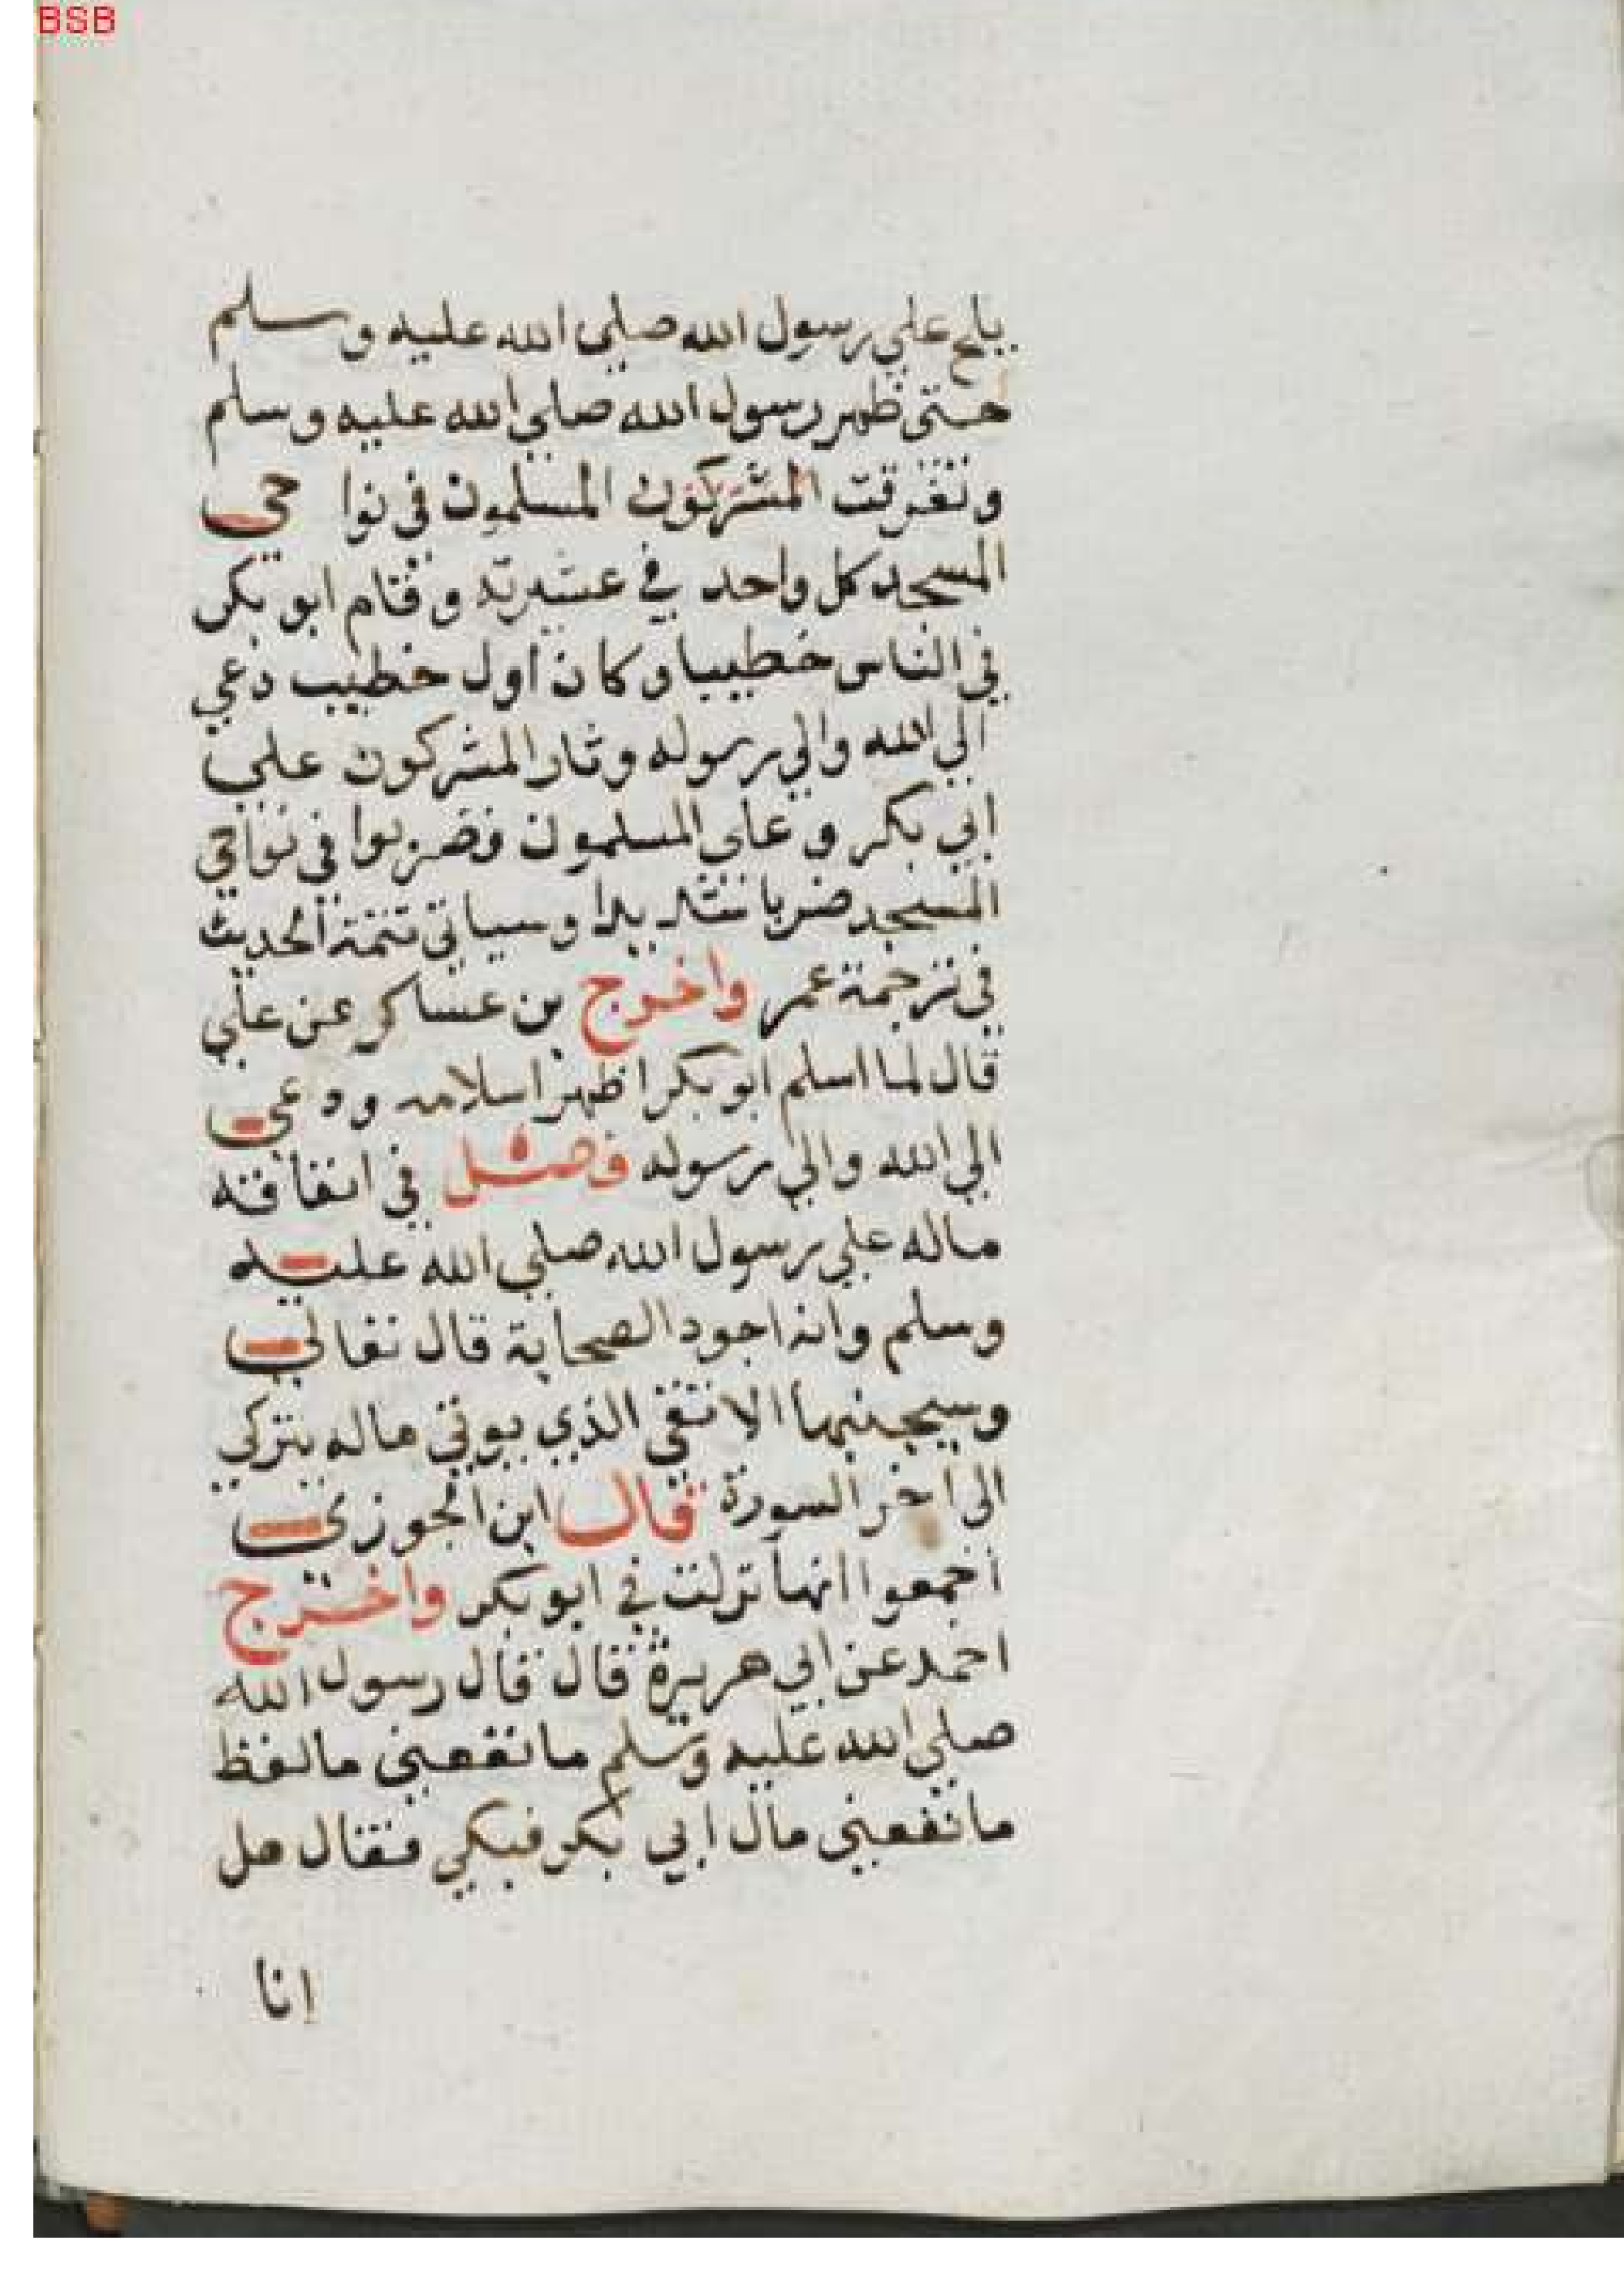 BSB
يلح علي رسول الله صلي الله عليه وسلم
حتى ظهر رسول الله صلي الله عليه وسلم
وتفرقت المشركون المسلمون في نوا حي
المسجد كل واحد في عشيرته وقام ابو بكر
في الناس خطيبا وكان اول خطيب دعي
الي الله والي رسوله وثار المشركون علي
ابي بكر وعلي المسلمون فضربوا في نواحي
المسجد ضربا شديدا وسياتي تتمة الحديث
في ترجمة عمر واخرج بن عساكر عن علي
قال لما اسلم ابو بكر اظهر اسلامه ودعي
الي الله والي رسوله فصل في انفاقه
ماله علي رسول الله صلي الله عليه
وسلم وانه اجود الصحابة قال تعالي
وسيجنبها الاتقي الذي يوتي ماله يتزكي
الى اخر السورة قال ابن الجوزي
اجمعوا انها نزلت في ابو بكر واخرج
احمد عن ابي هريرة قال قال رسول الله
صلي الله عليه وسلم ما نفعني مال فظ
ما نفعني مال ابي بكر فبكي فقال هل
انا